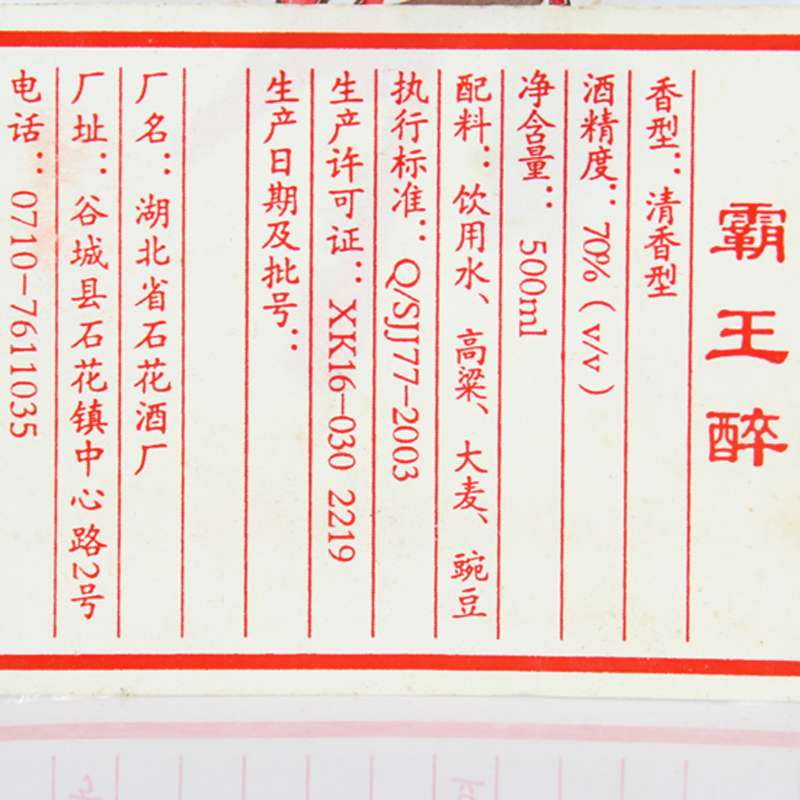 霸王醉
香型：清香型
酒精度：70%（v/v）
净含量：500ml
配料：饮用水、高粱、大麦、豌豆
执行标准：Q/SJJ77-2003
生产许可证：XK16-030 2219
生产日期及批号：
厂名：湖北省石花酒厂
厂址：谷城县石花镇中心路2号
电话：0710-7611035